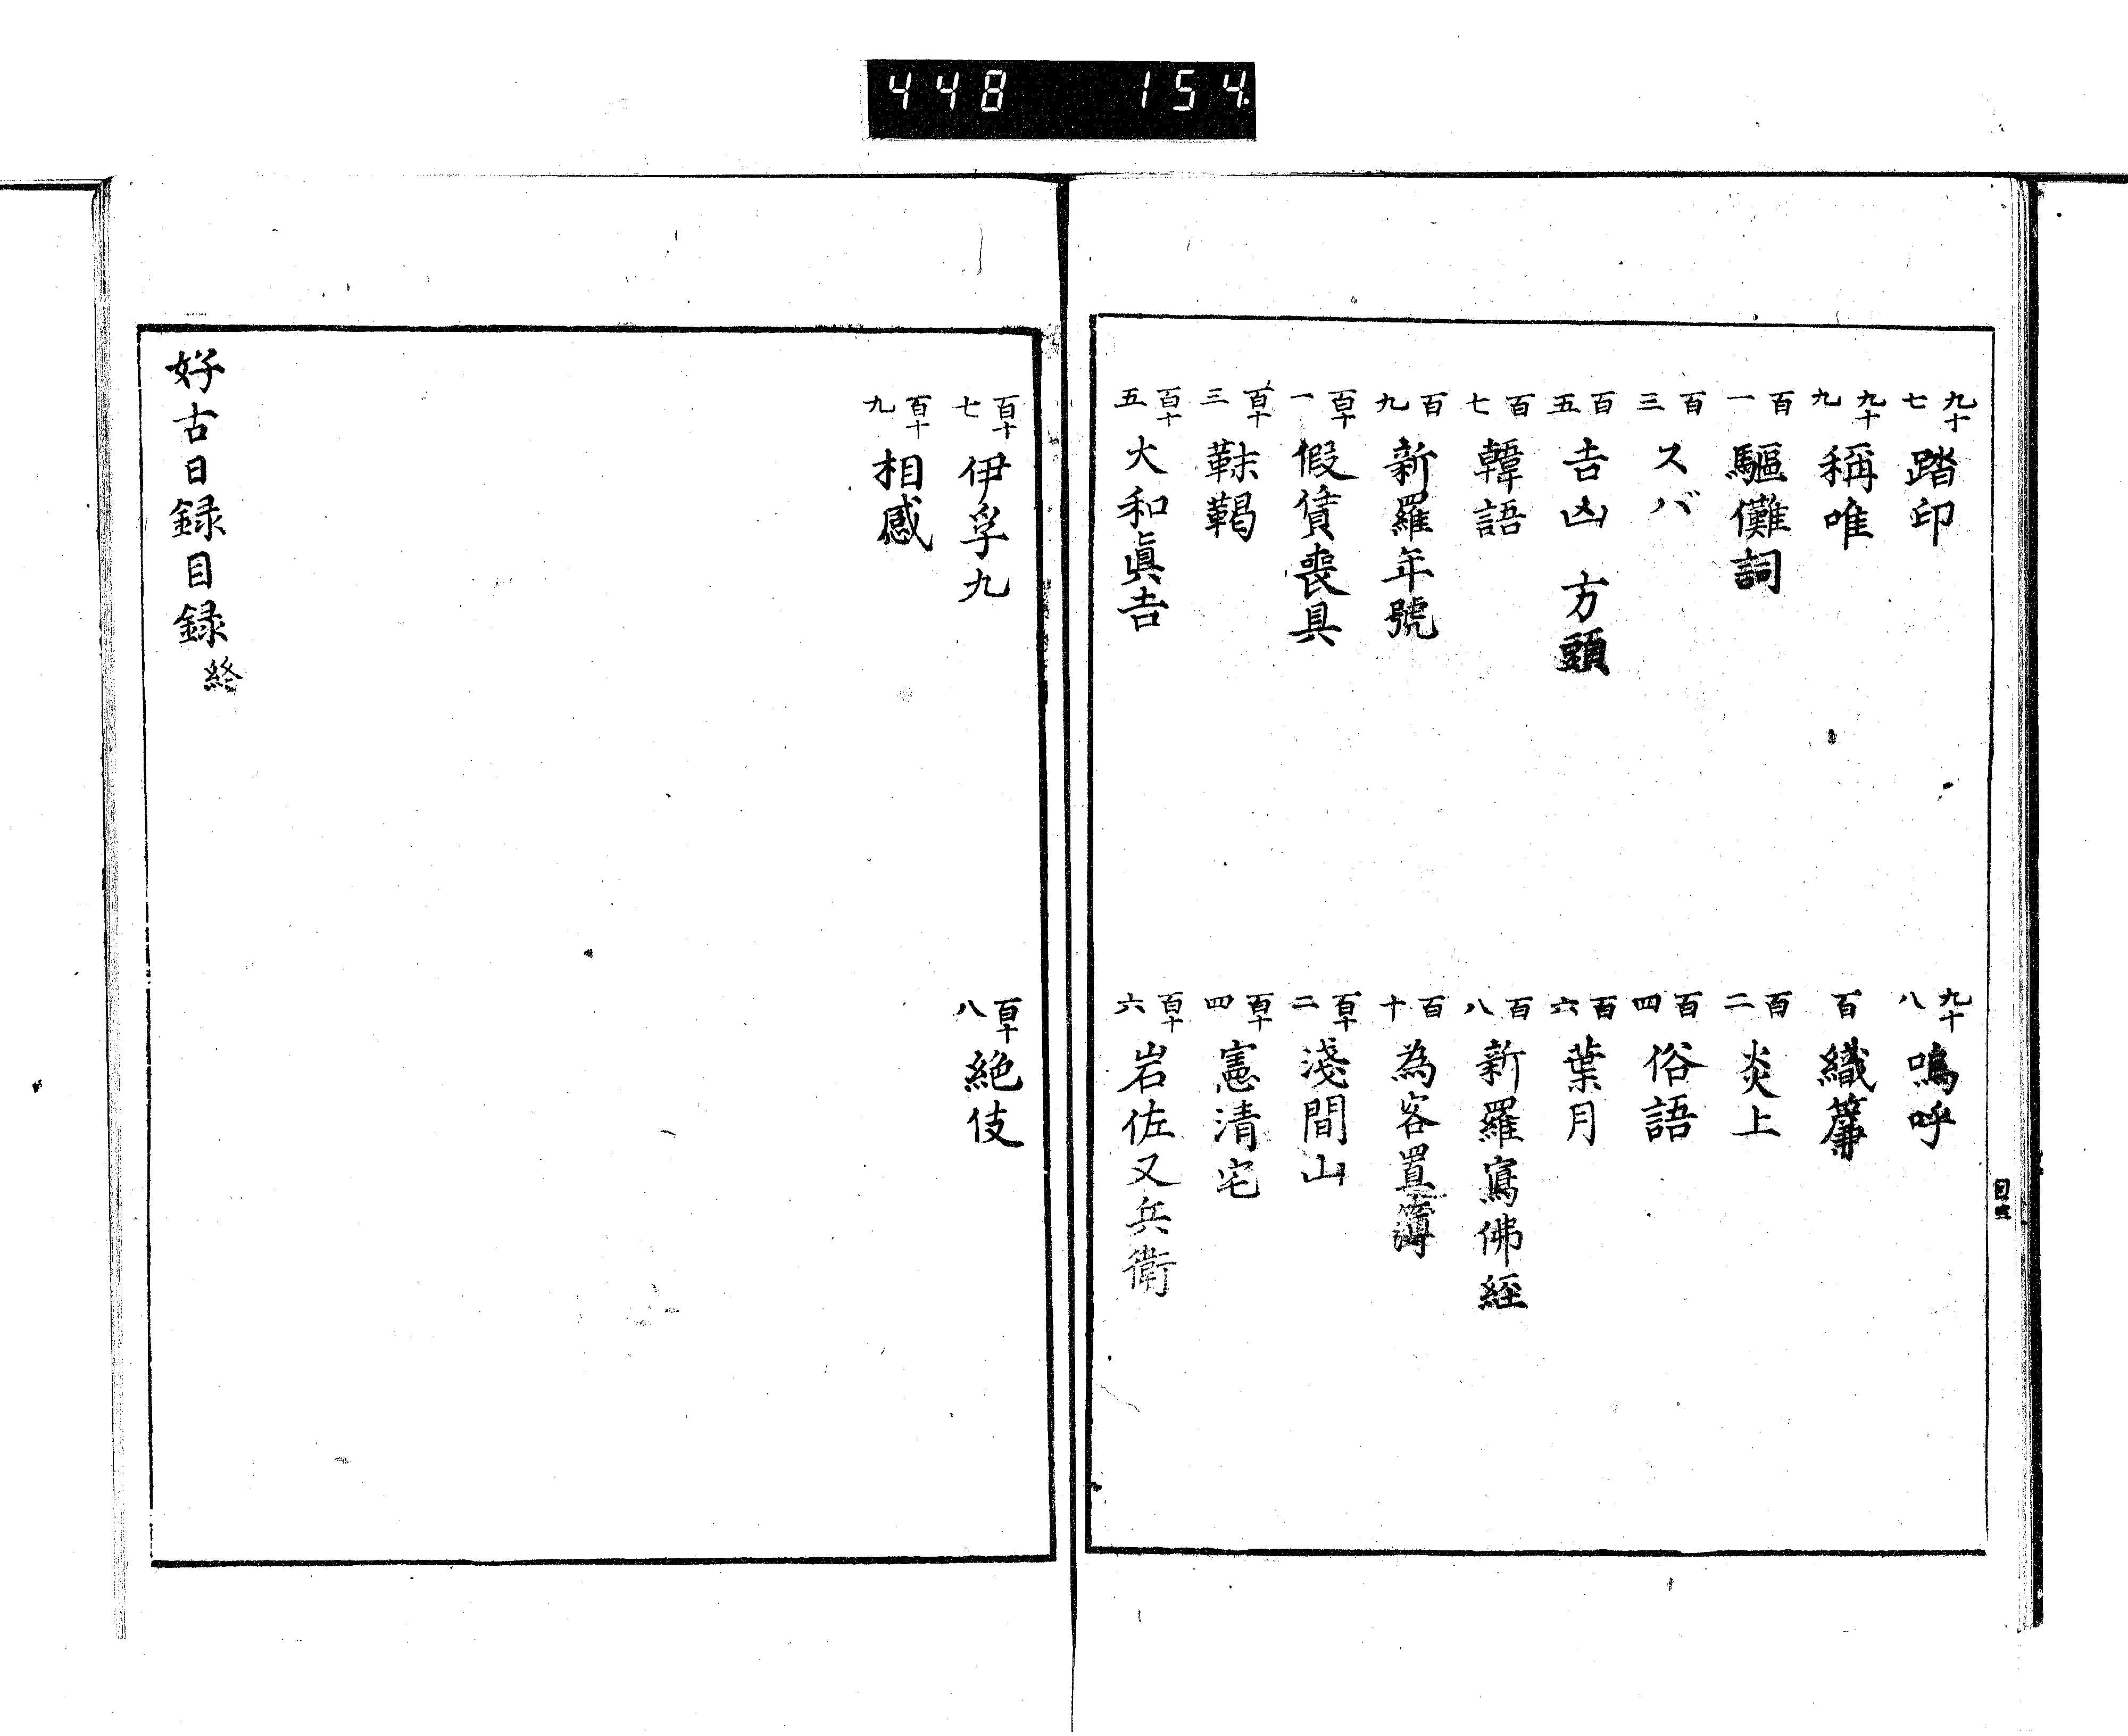 448 154
九十七 踏印
九十八 鳴呼
九十九 稱唯
百 織簾
百一 驅儺詞
百二 炎上
百三 スバ
百四 俗語
百五 吉凶 方頭
百六 葉月
百七 韓語
百八 新羅寫佛經
百九 新羅年號
百十 為客置簿
百十一 假賃喪具
百十二 淺間山
百十三 靺鞨
百十四 憲清宅
百十五 大和眞吉
百十六 岩佐又兵衛
百十七 伊孚九
百十八 絶伎
百十九 相感
好古日録目録終